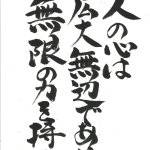 人の心は
広大無辺であり
無限の力を持